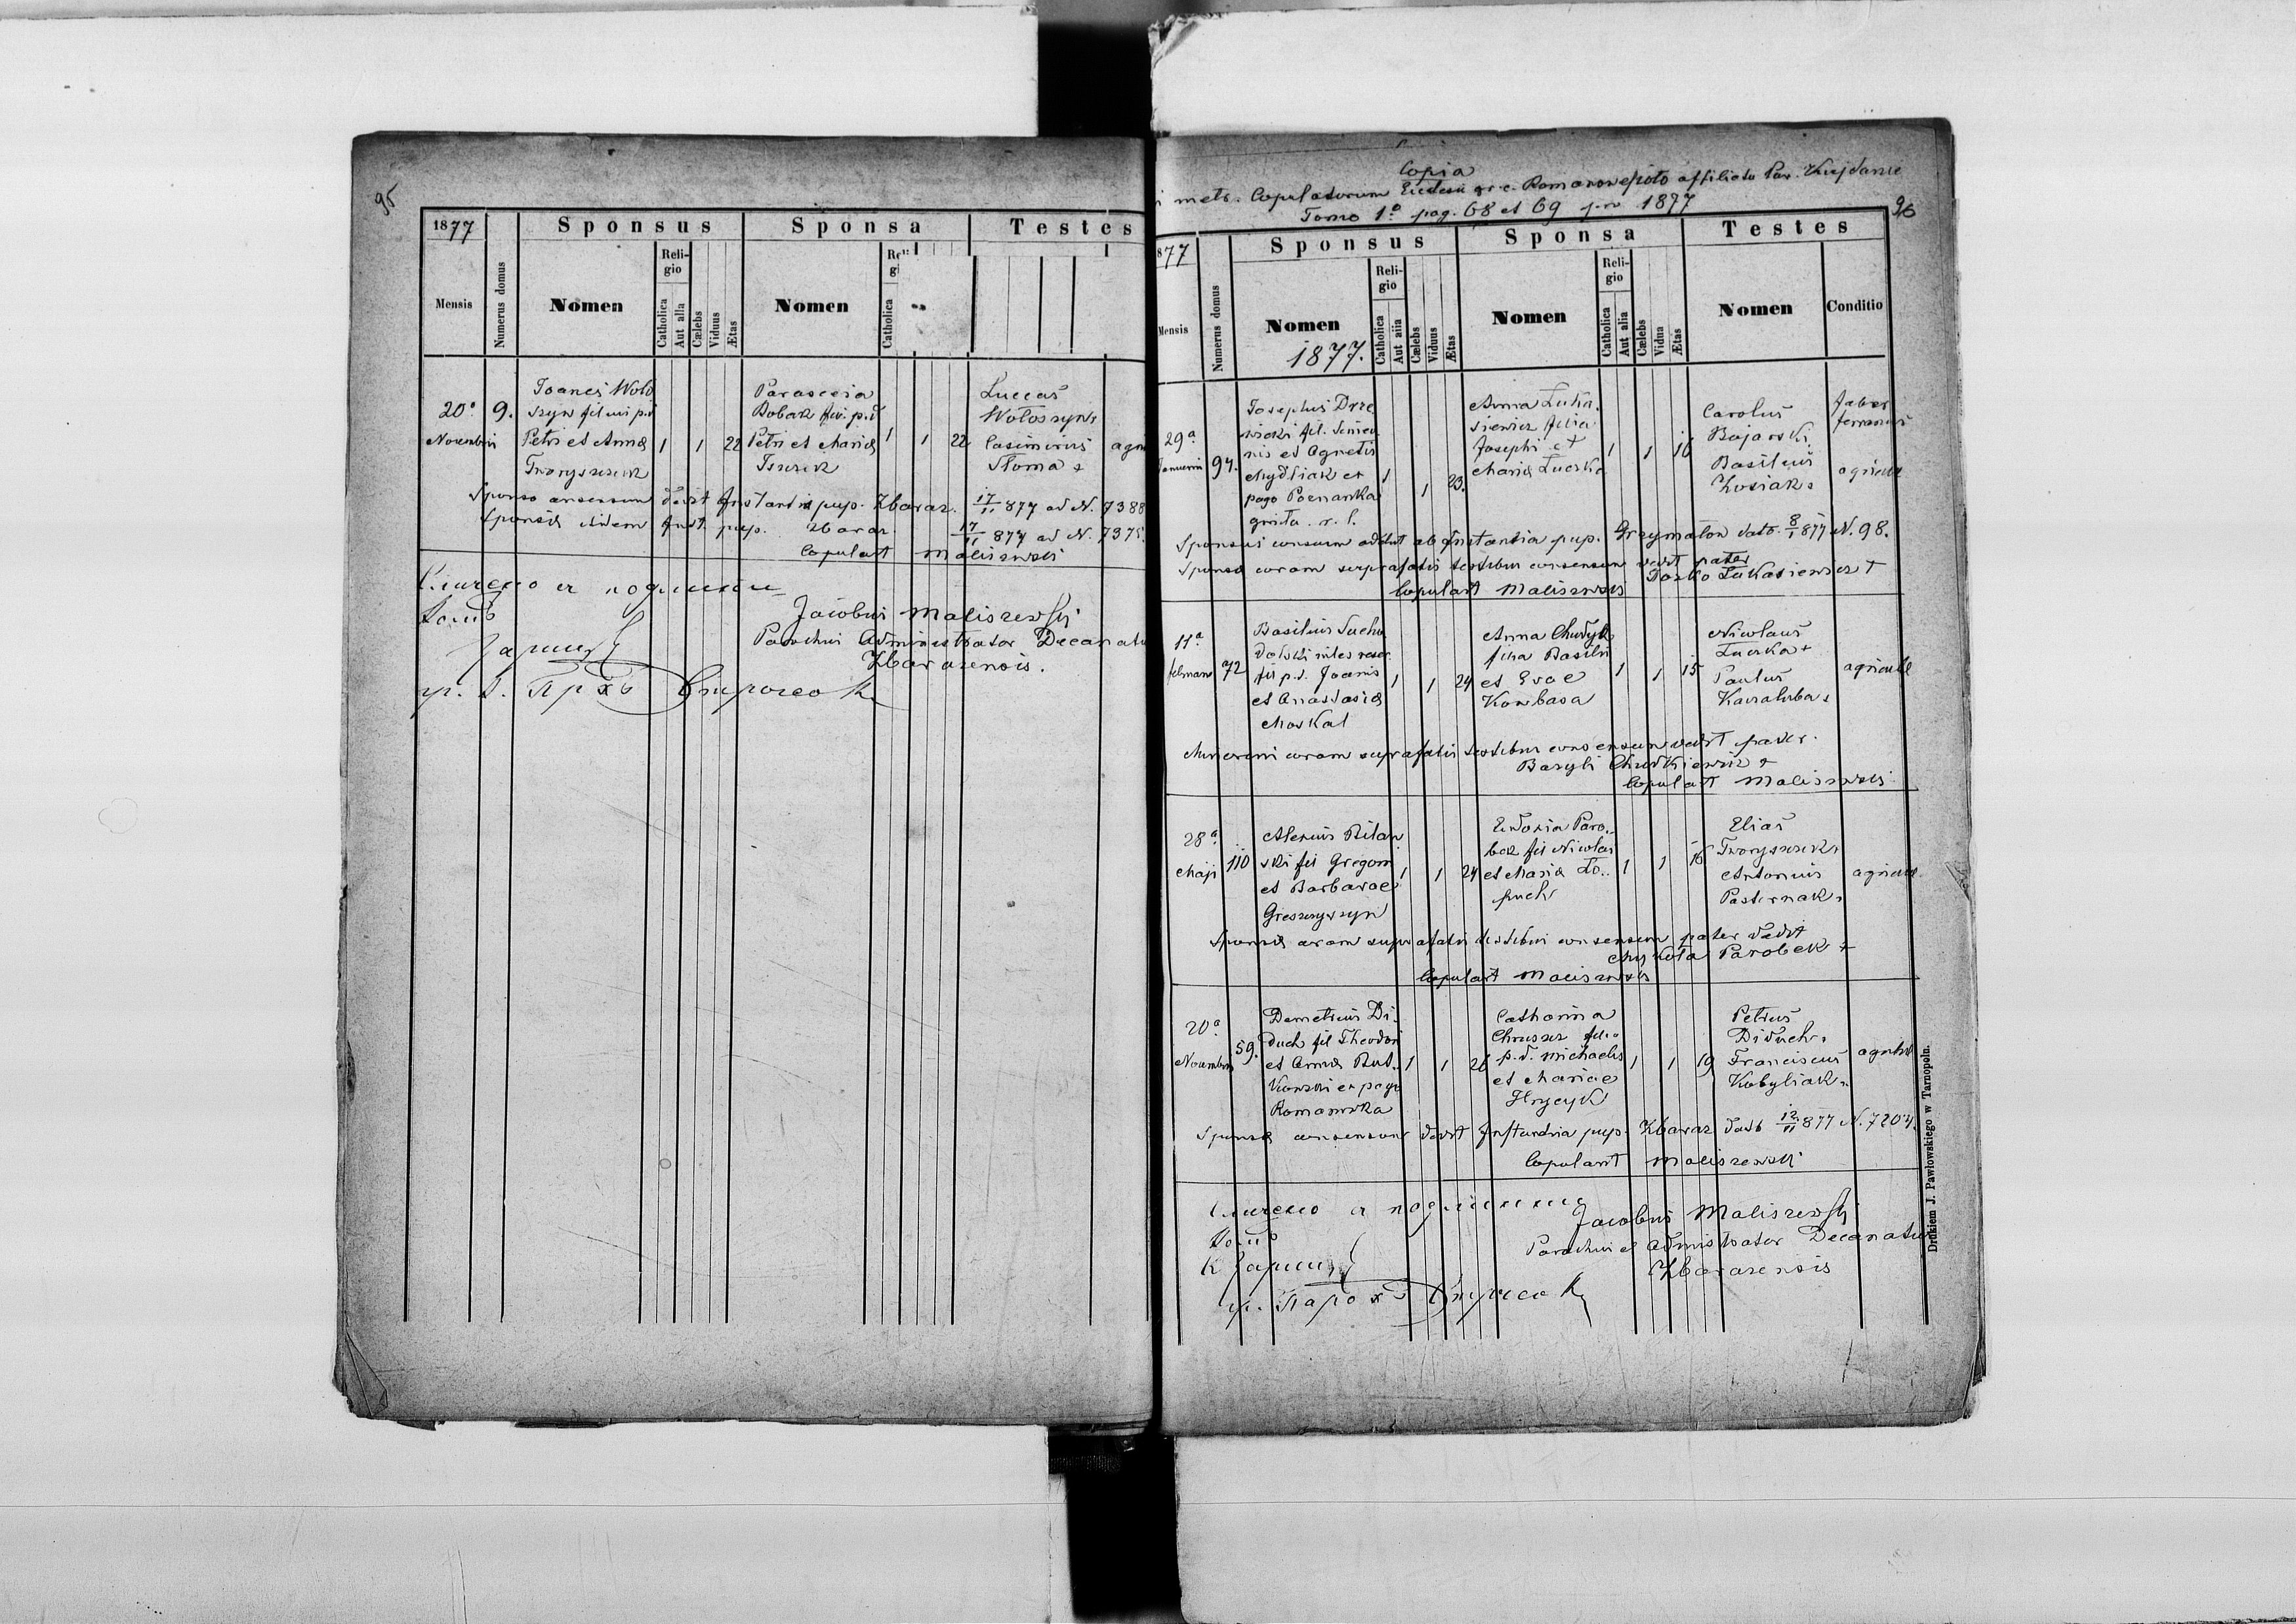 95
1877
Sponsus
Sponsa
Testes
Mensis
Numerus domus
Nomen
Religio
Catholica
Aut alia
Cælebs
Viduus
Ætas
Nomen
Catholica
20ª
Novembris
9.
Joanes Woło
szyn fil
Petri et Anna
Tworyszczuk
1 1 22
Parascevia
Bobak
Petri et Maria
1 1 22
Luccas
Wołoszyn
Casimirus
Słoma +
Sponso consensum dedit Instantia pup. Zbaraz. 17/11 877 ad N. 7388
Sponsæ itidem Inst. pup. Zbaraz 17/11 877 ad N.
Copulavit Maliszewski
Jacobus Maliszewski
Parochus Administrator Decanatu
Zbarazensis.
Copia
metr. Copulatorum Ecclesiæ gr. c. Romanowesioło affiliata Par. Kujdance
Tomo 1º pag. 68 et 69 pro 1877
96
877
Sponsus
Sponsa
Testes
Mensis
Numerus domus
Nomen
1877.
Religio
Catholica
Aut alia
Cælebs
Viduus
Ætas
Nomen
Religio
Catholica
Aut alia
Cælebs
Vidua
Ætas
Nomen
Conditio
29ª
Januarii
94.
Josephus Drze
wicki fil.
nis et Agnetis
Mydliak ex
pago Poznanka
r. l.
1 1 23.
Anna Luka
siewicz filia
Josephi et
Maria Lucska
1 1 16
Carolus
Bajarski
Basilius
faber
ferrarius
agricola
Sponsus consensum ab Instantia pup. Grzymałow dato 8/1 877 N. 98.
Sponsæ coram suprafatis testibus consensum dedit pater
Łukasiewicz +
Copulavit Maliszewski
11ª
februarii
72
Basilius Sucho
dolski miles reser.
fil p.d. Joanis
et Anastasia
Moskal
1 1 24
Anna Chudyk
filia Basilii
et Evae
Kowbasa
1 1 15
Nicolaus
Lucska +
Paulus
agricolæ
Minoreni coram suprafatis testibus consensum dedit pater
Bazyli Chudkiewicz +
Copulavit Maliszewski
28ª
Maji
110
Alexius Bilan
ski fil Gregorii
et Barbarae
Greszczyszyn
1 1 24
Eudoxia Paro
bek fil Nicolai
et Maria Lo
puch
1 1 16
Elias
Tworyszczuk +
Antonius
Pasternak +
agricolæ
Sponsæ coram suprafatis testibus consensum pater dedit
Mykoła Parobek +
Copulavit Maliszewski
20ª
Novembris
59.
Demetrius Di
duch fil Theodori
et Anna Rut
kowski ex pago
Romanowka
1 1 26
Catharina
filia
p.d. Michaelis
et Mariae
Hrycyk
1 1 19
Petrus
Diduch +
Franciscus
Kobyliak +
agricolæ
Sponsæ consensum dedit Instantia pup. Zbaraz dato 12/11 877 N. 7204.
Copulavit Maliszewski
Jacobus Maliszewski
Parochus et Administrator Decanatus
Zbarazensis
Drukiem J. Pawłowskiego w Tarnopolu.